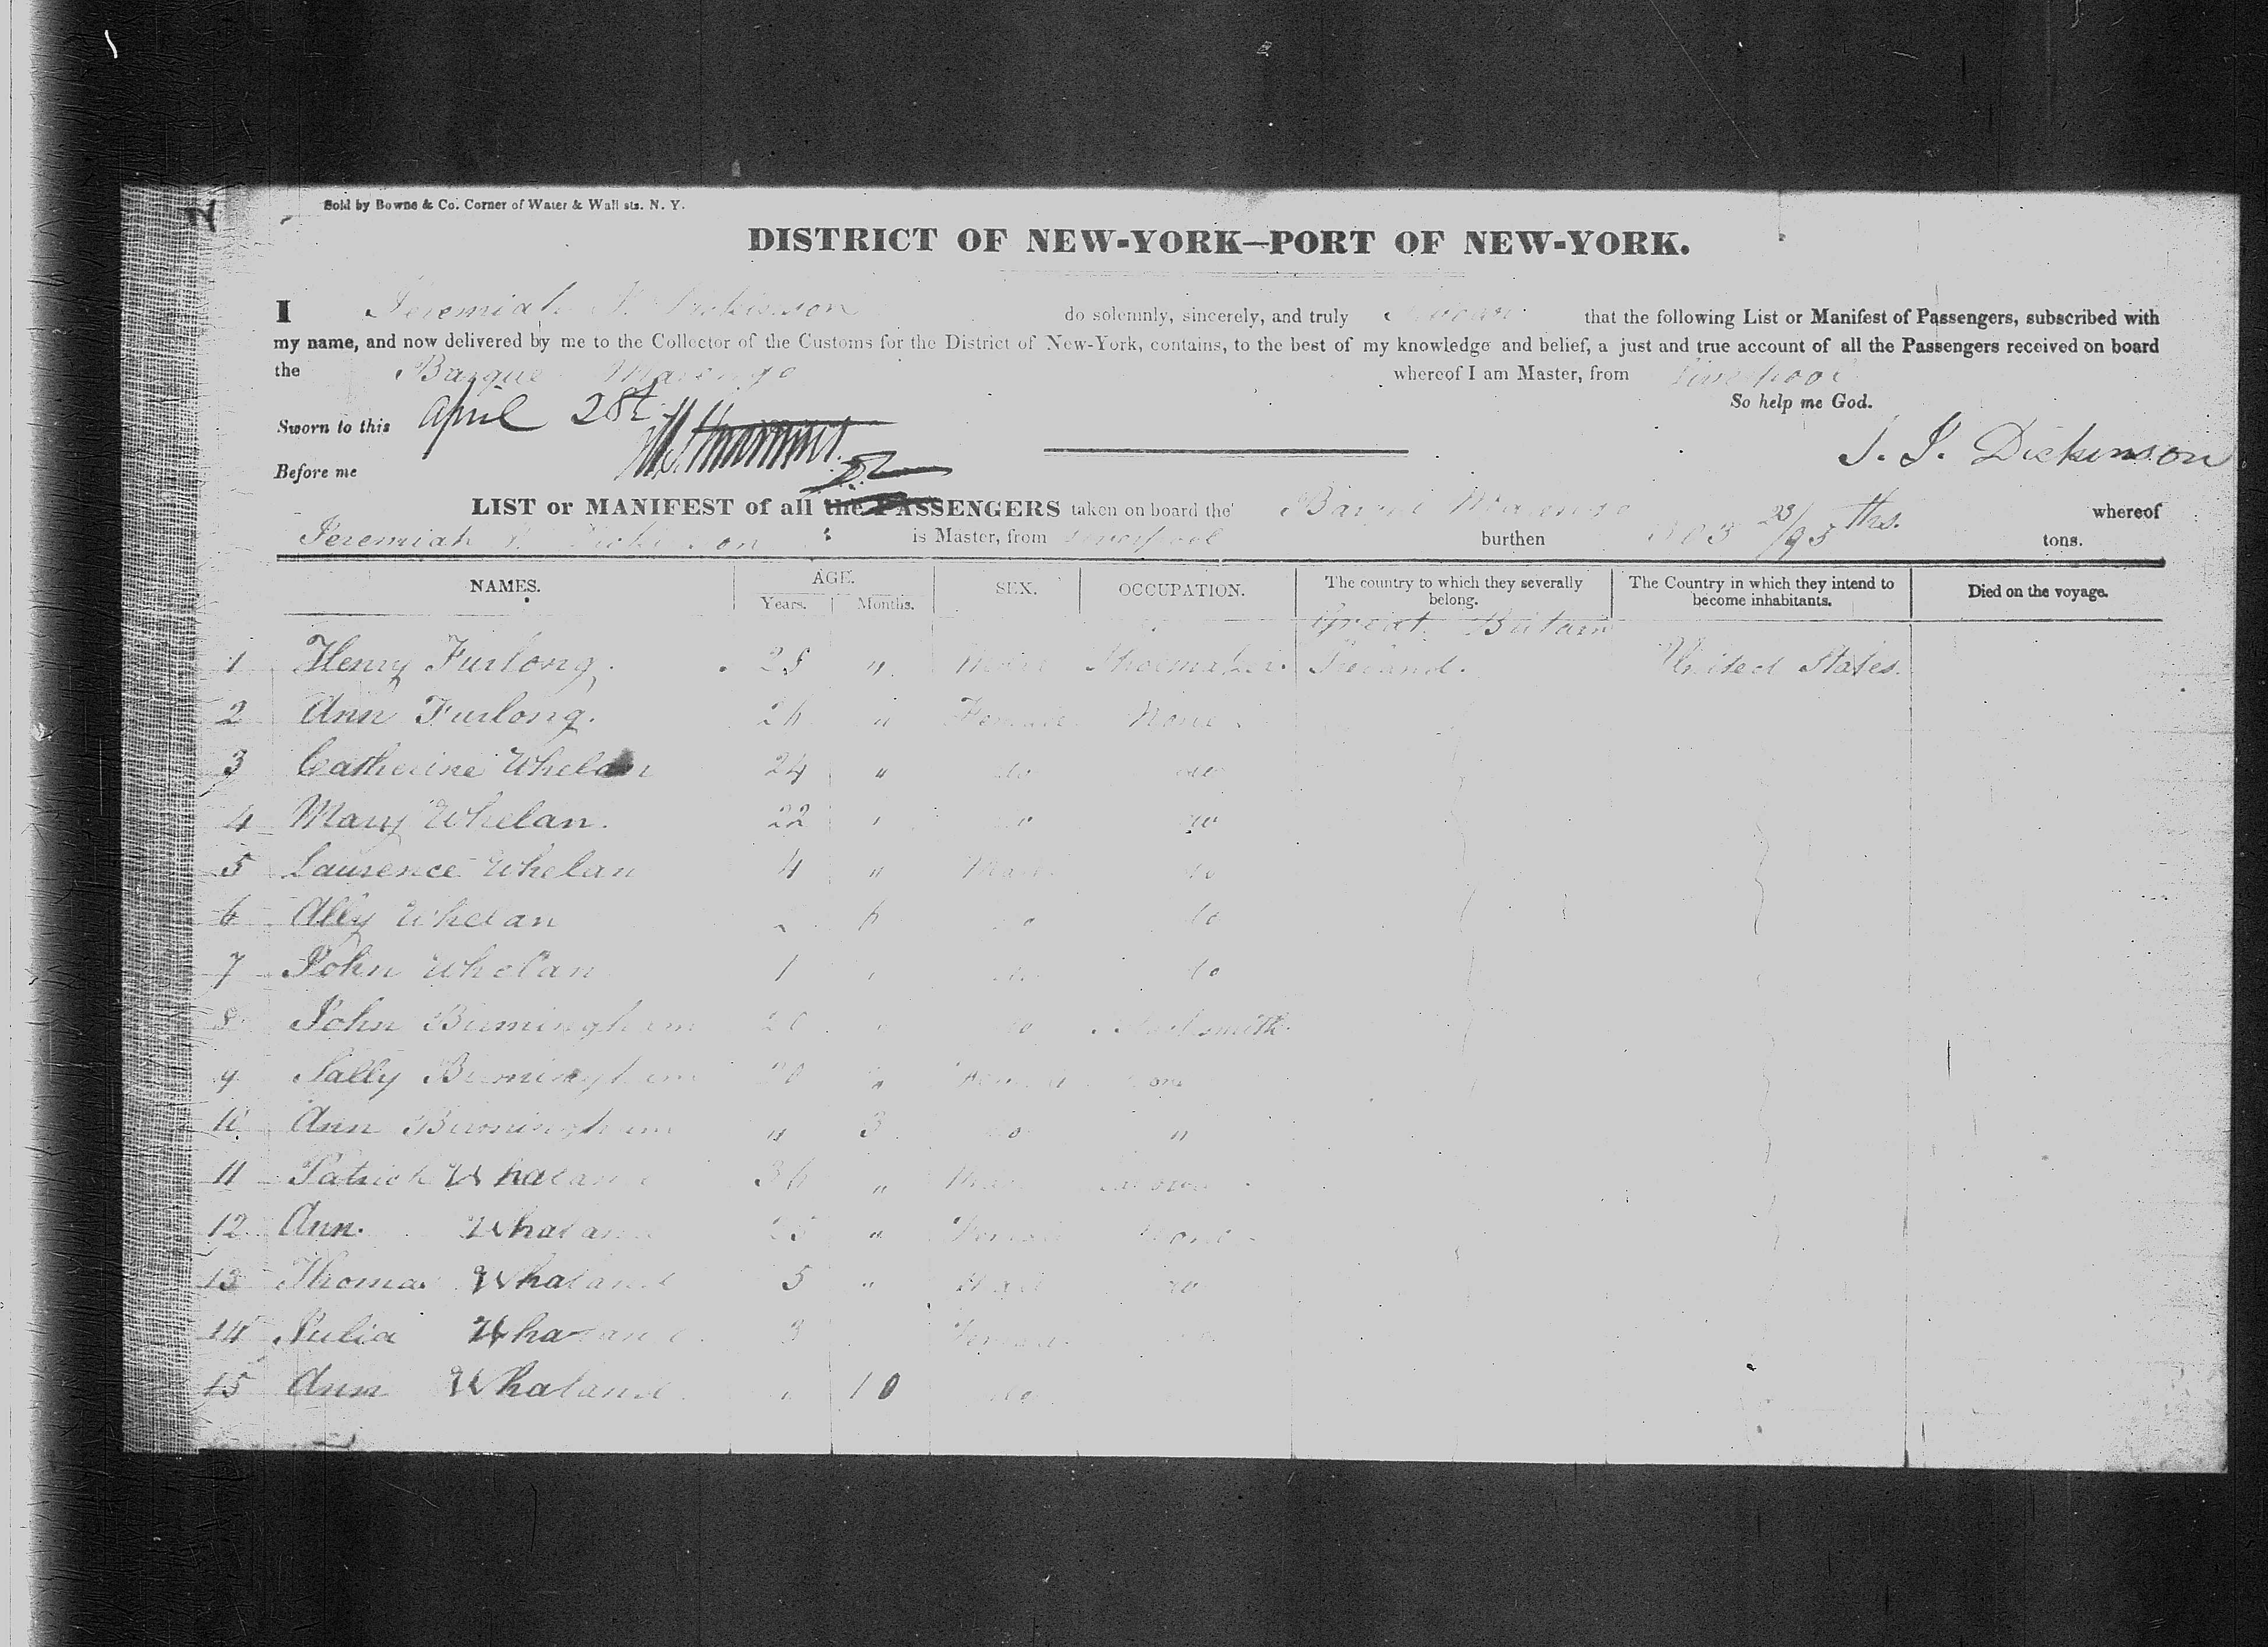 Sold by Bowne & Co. Corner of Water & Wall sts. N. Y.
DISTRICT OF NEW-YORK—PORT OF NEW-YORK.
I Jeremiah Dickinson do solemnly, sincerely, and truly swear that the following List or Manifest of Passengers, subscribed with
my name, and now delivered by me to the Collector of the Customs for the District of New-York, contains, to the best of my knowledge and belief, a just and true account of all the Passengers received on board
the Barque Marengo whereof I am Master, from Liverpool
So help me God.
Sworn to this April 28th
J. J. Dickinson
Before me
LIST or MANIFEST of all the PASSENGERS taken on board the Barque Marengo whereof
Jeremiah Dickinson is Master, from Liverpool burthen 303 23/95 ths. tons.
NAMES. AGE. SEX. OCCUPATION. The country to which they severally belong. The Country in which they intend to become inhabitants. Died on the voyage.
Years. Months.
Great Britain
1 Henry Furlong. 28 " Male Shoemaker. Ireland. United States.
2 Ann Furlong. 26 " Female None.
3 Catherine Whelan 24 " do do
4 Mary Whelan. 22 do do
5 Laurence Whelan 4 " Male do
6 Ally Whelan 6 do do
7 John Whelan 1 do do
8 John Birmingham 20 do Blacksmith.
9 Sally Birmingham 20 " Female None
10 Ann Birmingham " 3 do "
11 Patrick Whaland 36 " Male
12 Ann. Whaland 25 " Female None
13 Thomas Whaland 5 " Male do
14 Julia Whaland 3 Female
15 Ann Whaland 10 do